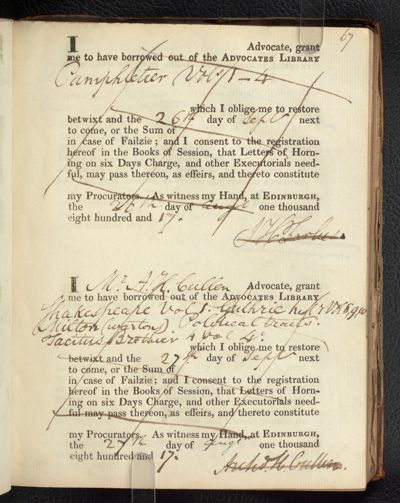 67
I Advocate, grant
me to have borrowed out of the ADVOCATES LIBRARY
Pamphleteer Vol. 1-4
which I oblige me to restore
betwixt and the 26th day of Septr next
to come, or the Sum of
in case of Failzie; and I consent to the registration
hereof in the Books of Session, that Letters of Horn-
ing on six Days Charge, and other Executorials need-
ful, may pass thereon, as effeirs, and thereto constitute
my Procurators. As witness my Hand, at EDINBURGH,
the 26th day of augt one thousand
eight hundred and 17.
I Mr. A. H. Cullen Advocate, grant
me to have borrowed out of the ADVOCATES LIBRARY
Shakespeare Vol. Guthrie
Milton (Warton) Political tracts.
Tacitus Brotier 4 Vol. 4o.
which I oblige me to restore
betwixt and the 27th day of Septr next
to come, or the Sum of
in case of Failzie; and I consent to the registration
hereof in the Books of Session, that Letters of Horn-
ing on six Days Charge, and other Executorials need-
ful may pass thereon, as effeirs, and thereto constitute
my Procurators. As witness my Hand, at EDINBURGH,
the 27th day of Augt one thousand
eight hundred and 17.
Archd H Cullen.